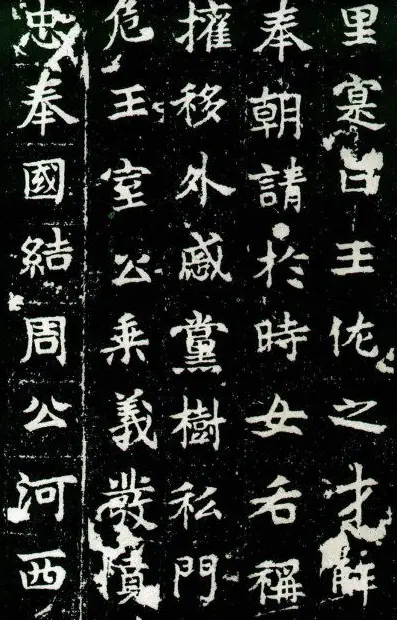 里寔曰王佐之才解
奉朝請於時女后稱
權移外戚黨樹私門
危王室公秉義發憤
忠奉國結周公河西